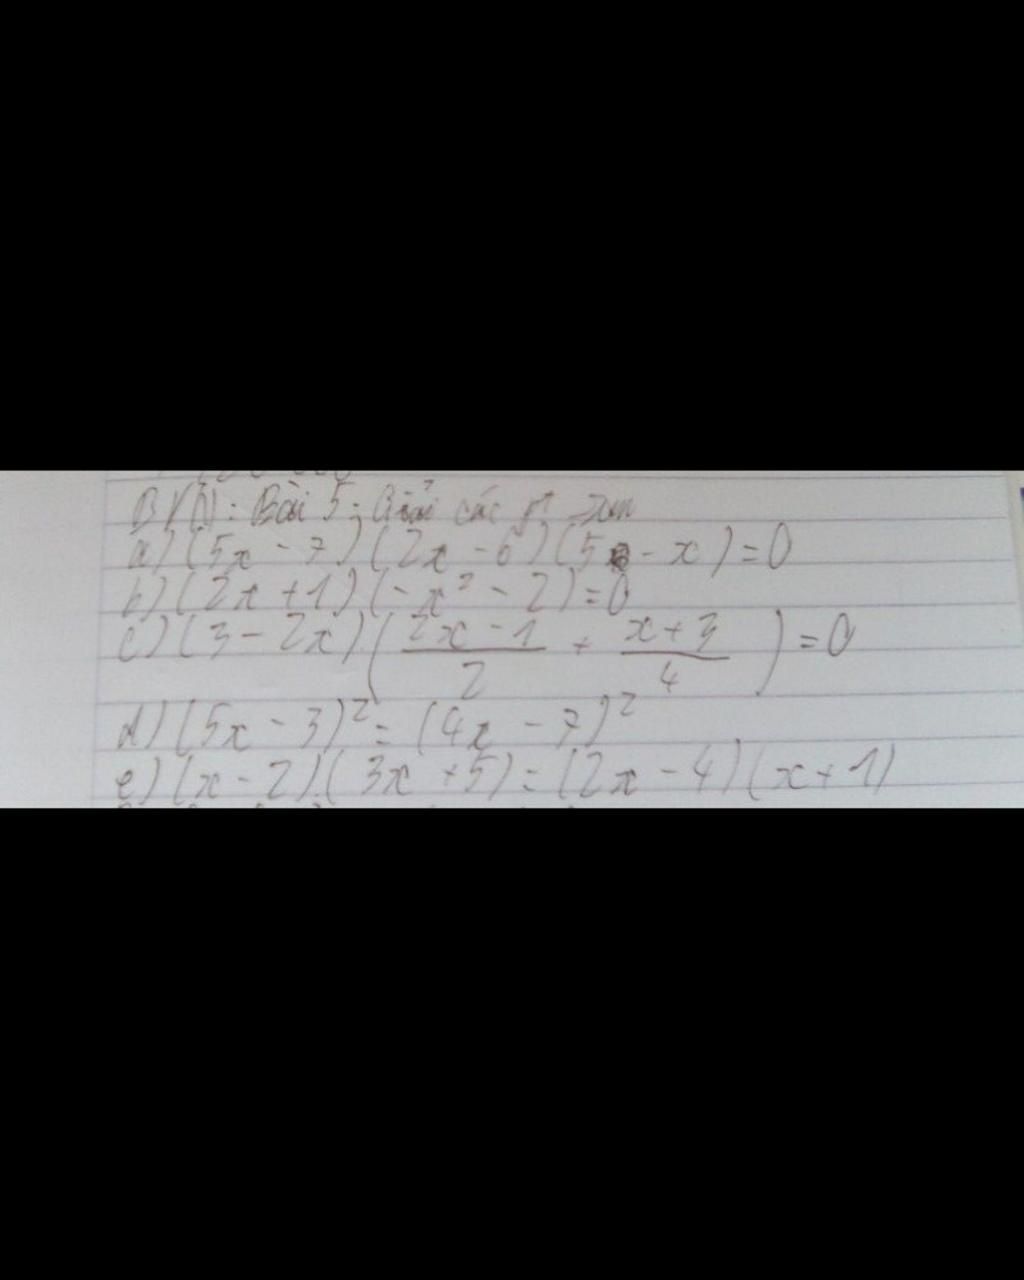 BVN: Bài 5: Giải các pt sau
a) (5x - 7) (2x - 6) (5 - x) = 0
b) (2x + 1) (- x² - 2) = 0
c) (3 - 2x) . ( \frac{2x - 1}{2} + \frac{x + 3}{4} ) = 0
d) (5x - 3)² = (4x - 7)²
e) (x - 2) . (3x + 5) = (2x - 4) (x + 1)